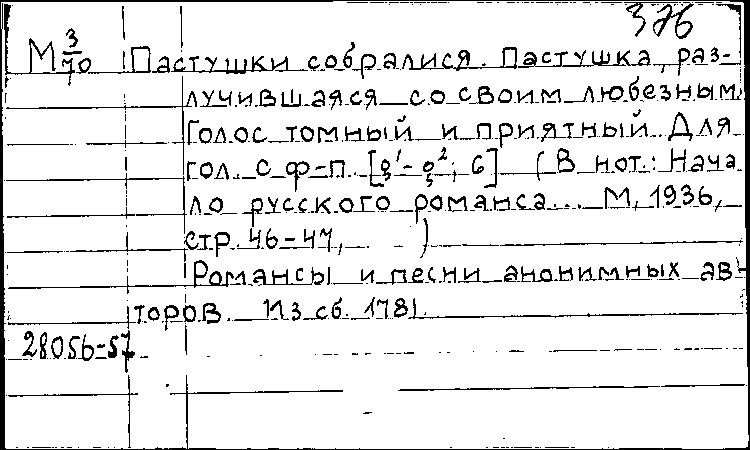 376
М 3/70 Пастушки собралися. Пастушка, раз-
лучившаяся со своим любезным.
Голос томный и приятный. Для
гол. с ф-п. [g¹-g²; G] (В нот.: Нача
ло русского романса... М, 1936,
стр. 46-47, )
Романсы и песни анонимных ав-
торов. Из сб. 1781.
28056-57